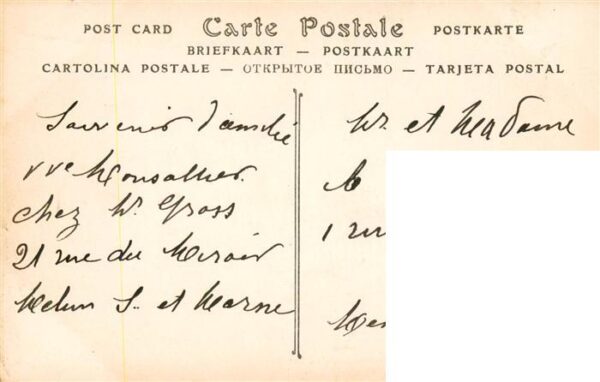 POST CARD Carte Postale POSTKARTE
BRIEFKAART — POSTKAART
CARTOLINA POSTALE — ОТКРЫТОЕ ПИСЬМО — TARJETA POSTAL
Souvenir d'amitié
Vve
chez Mr Gross
21 rue du Miroir
Melun S. et Marne
Mr et Madame
1 rue